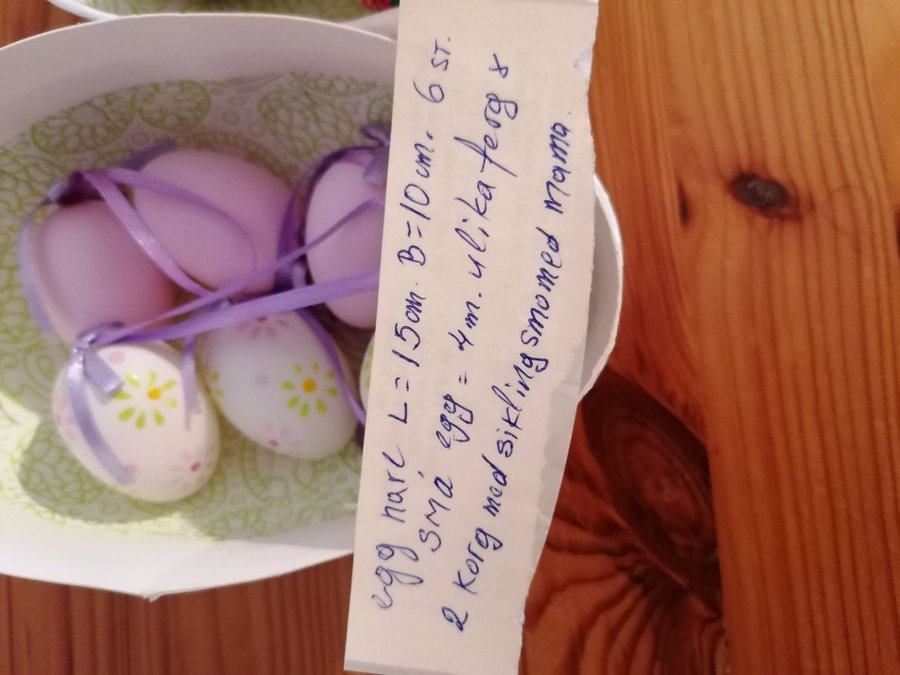 egg harl L = 15cm. B = 10 cm. 6 ST.
SMÁ egg = 4m. ulika ferg 8
2 korg med siklingsmomed mama.